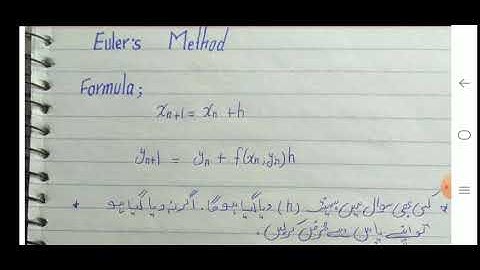 Euler's Method
Formula;
xₙ₊₁ = xₙ + h
yₙ₊₁ = yₙ + f(xₙ, yₙ)h
* کسی بھی سوال میں ہمیشہ (h) دیا گیا ہوگا. اگر نہ دیا گیا ہو *
تو اپنے پاس سے فرض کرلیں.